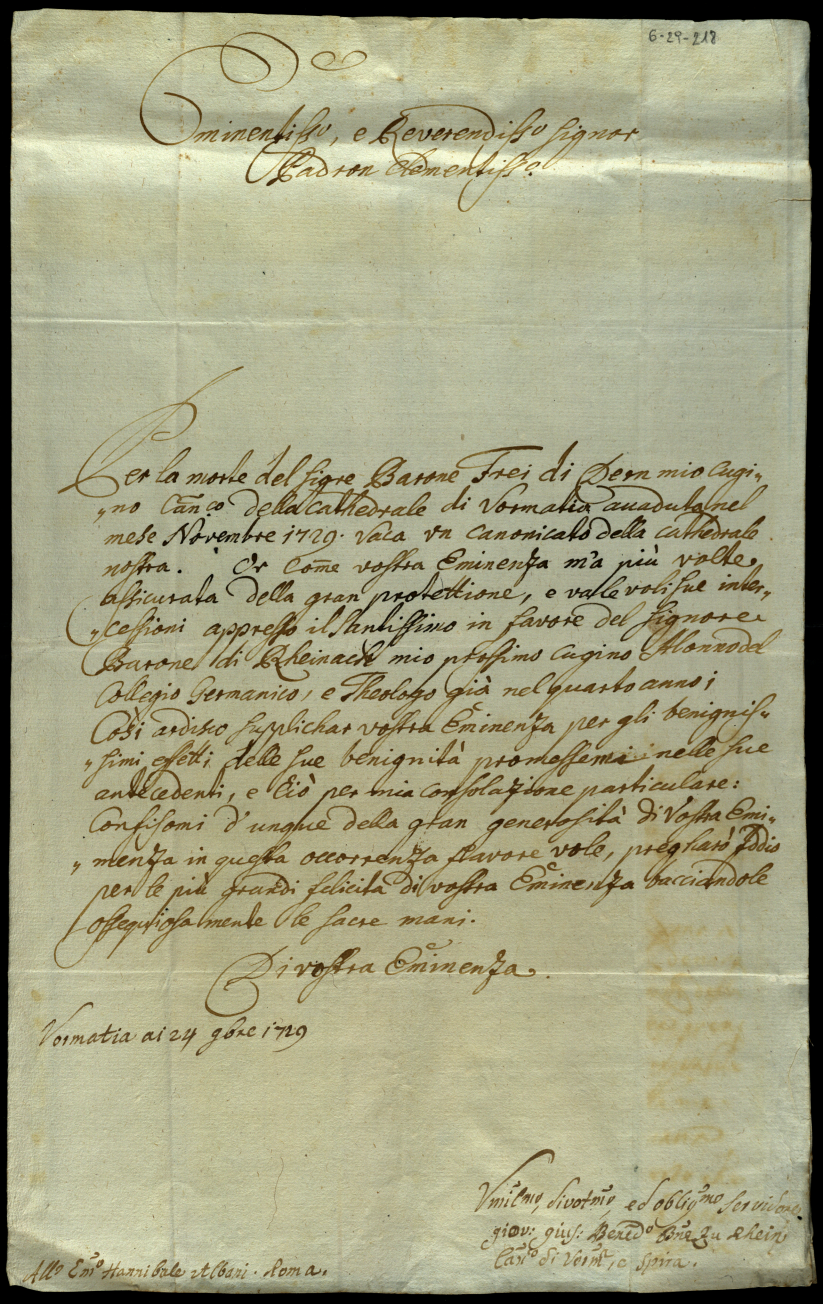 6-29-218
Eminentisso, e Reverendisso Signor
Padron Clementisso
Per la morte del Sigre Barone Frei di Dern mio Cugi„
„no Can.co della Cathedrale di Vormatia accaduta nel
mese Novembre 1729. Vaca vn canonicato della cathedrale
nostra. Or Come vostra Eminenza m'a più volte
assicurata della gran protettione, e valevoli sue inter„
„cessioni appresso il Santissimo in favore del Signore
Barone di Rheinach mio prossimo cugino Alonno del
Collegio Germanico, e Theologo già nel quarto anno;
Così ardisco supplichar vostra Eminenza per gli benignis„
„simi effetti delle sue benignità promessemi nelle sue
antecedenti, e Ciò per mia consolazione particulare:
Confisomi d'unque della gran generosità di Vostra Emi„
„nenza in questa occorrenza favore vole, pregharò Iddio
per le più grandi felicità di vostra Eminenza bacciandole
ossequiosa mente le sacre mani.
Di vostra Eminenza.
Vormatia ai 24 9bre 1729
Vmilmo, divotmo, ed obligmo Servidore
giov: gius: Bened.o Bne Zu Rhein
Can.co di Vorm.a, e Spira.
All.o Em.o Hannibale Albani. Roma.